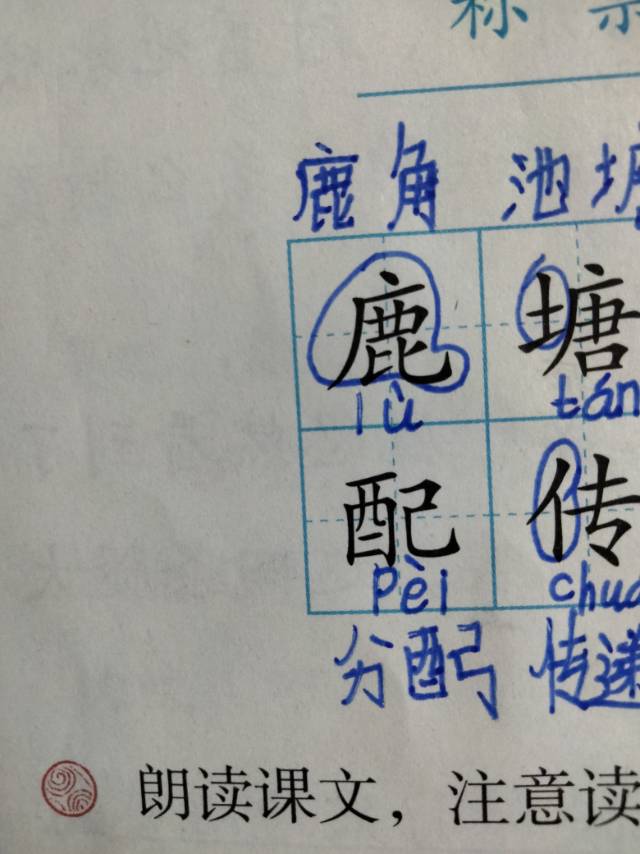 鹿角 池塘
鹿 塘
lù tán
配 传
pèi chua
分配 传递
朗读课文，注意读